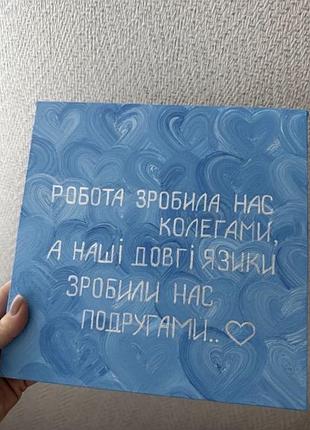 РОБОТА ЗРОБИЛА НАС
КОЛЕГАМИ,
А НАШІ ДОВГІ ЯЗИКИ
ЗРОБИЛИ НАС
ПОДРУГАМИ..♡